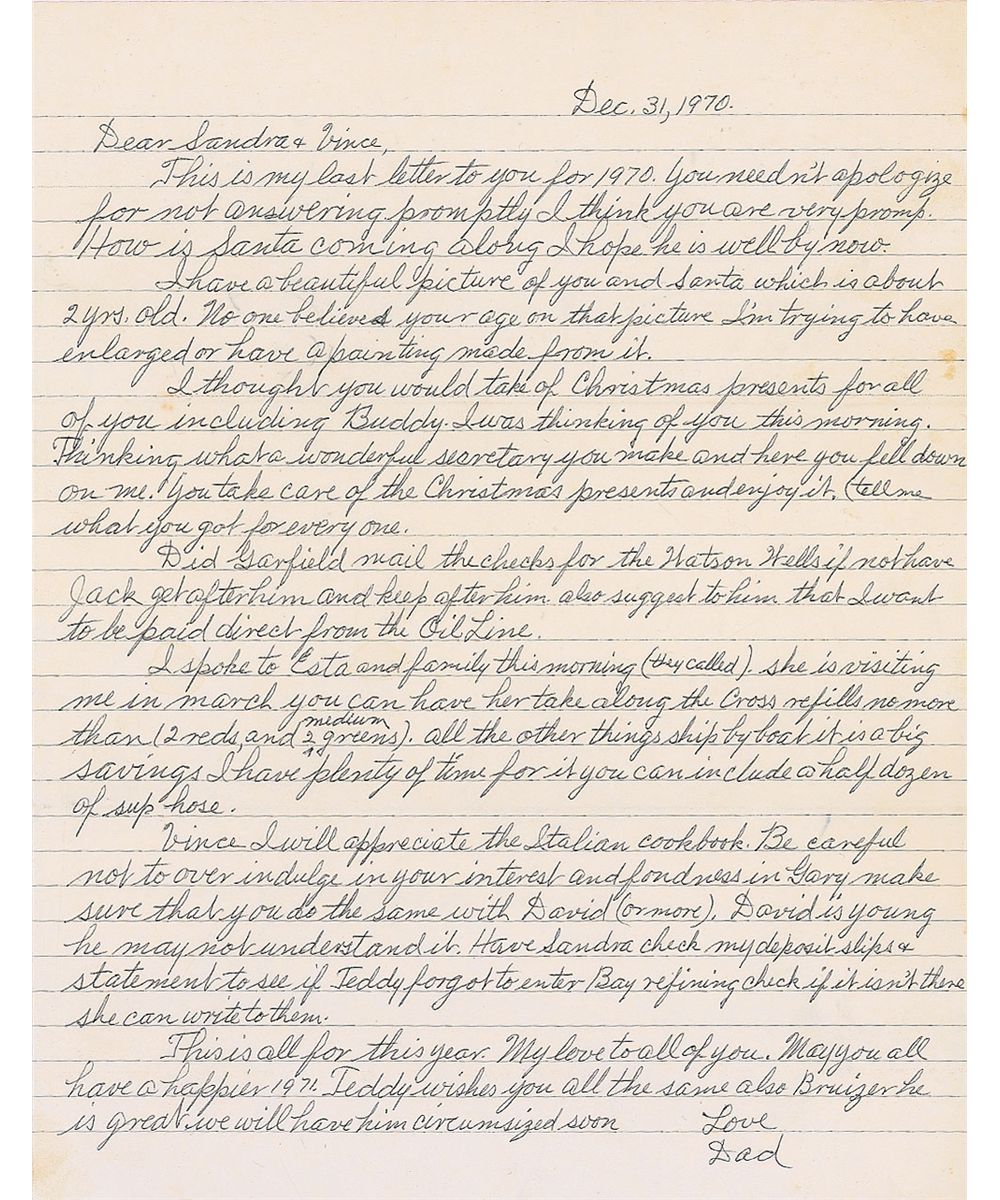 Dec. 31, 1970.
Dear Sandra & Vince,
This is my last letter to you for 1970. You needn't apologize
for not answering promptly I think you are very promp.
How is Santa coming along I hope he is well by now.
I have a beautiful picture of you and Santa which is about
2 yrs. old. No one believed your age on that picture I'm trying to have
enlarged or have a painting made from it.
I thought you would take of Christmas presents for all
of you including Buddy. I was thinking of you this morning.
Thinking what a wonderful secretary you make and here you fell down
on me. You take care of the Christmas presents and enjoy it, (tell me
what you got for every one.
Did Garfield mail the checks for the Watson Wells if not have
Jack get after him and keep after him also suggest to him that I want
to be paid direct from the Oil Line.
I spoke to Esta and family this morning (they called). she is visiting
me in march you can have her take along the Cross refills no more
medium
than (2 reds, and 2 greens). all the other things ship by boat it is a big
savings I have plenty of time for it you can include a half dozen
of sup hose.
Vince I will appreciate the Italian cookbook. Be careful
not to over indulge in your interest and fondness in Gary make
sure that you do the same with David (or more). David is young
he may not understand it. Have Sandra check my deposit slips &
statement to see if Teddy forgot to enter Bay refining check if it isn't there
she can write to them.
This is all for this year. My love to all of you. May you all
have a happier 1971. Teddy wishes you all the same also Bruizer he
is great we will have him circumsized soon
Love
Dad